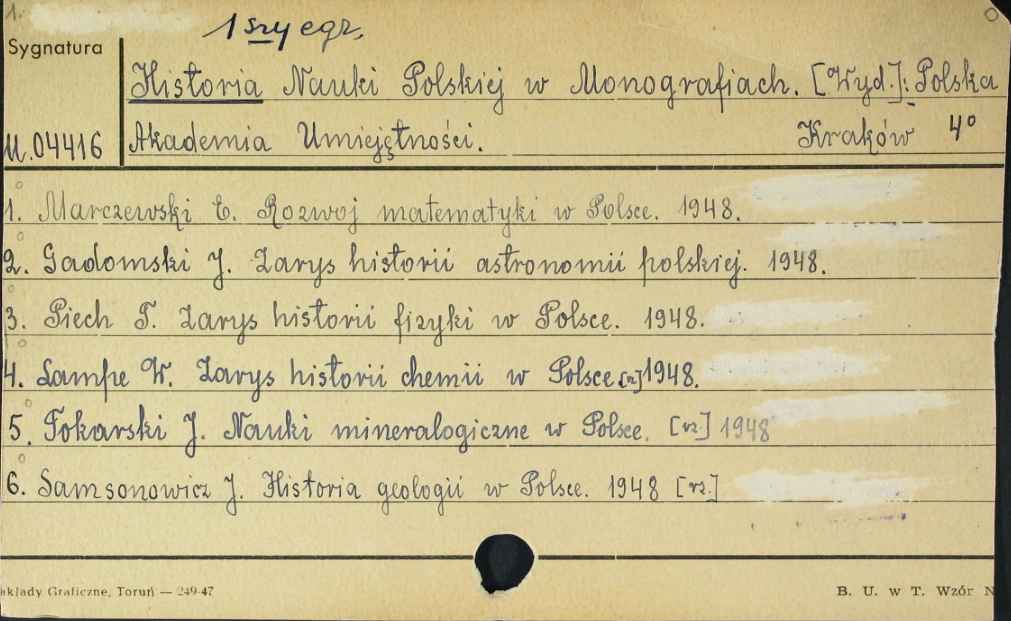 1.
1 szy egz.
Sygnatura
Historia Nauki Polskiej w Monografiach. [Wyd.]: Polska
U.04416 Akademia Umiejętności. Kraków 4°
1. Marczewski E. Rozwoj matematyki w Polsce. 1948.
2. Gadomski J. Zarys historii astronomii polskiej. 1948.
3. Piech T. Zarys historii fizyki w Polsce. 1948.
4. Lampe W. Zarys historii chemii w Polsce. [rz.] 1948.
5. Tokarski J. Nauki mineralogiczne w Polsce. [rz.] 1948
6. Samsonowicz J. Historia geologii w Polsce. 1948 [rz.]
akłady Graficzne, Toruń — 249-47
B. U. w T. Wzór N